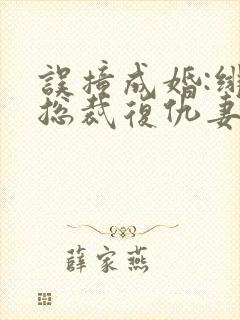 誤撞成婚:絕
总裁復仇妻
薛家燕